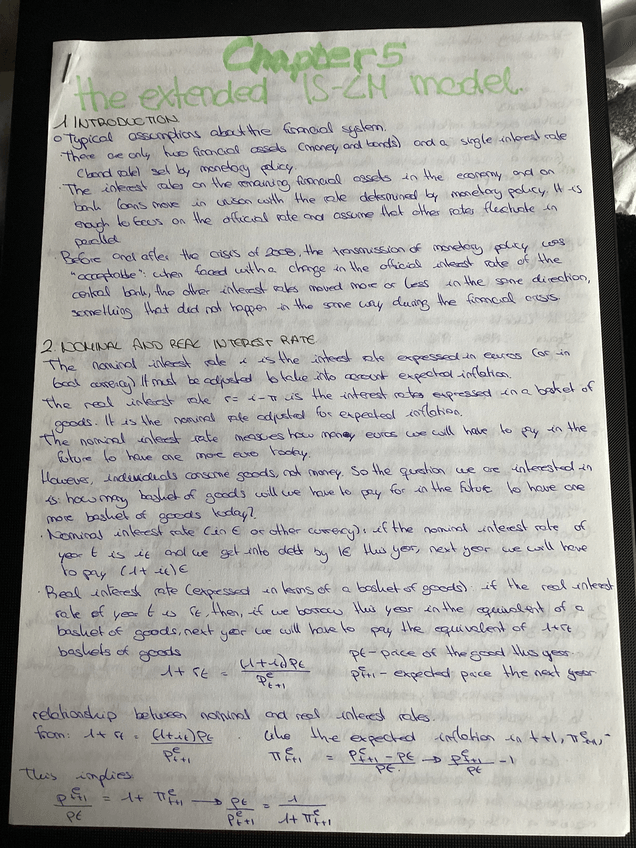 Chapter 5
the extended IS-LM model.
1 INTRODUCTION
Typical assumptions about the financial system.
There are only two financial assets (money and bonds) and a single interest rate
(bond rate) set by monetary policy.
The interest rates on the remaining financial assets in the economy and on
bank loans move in unison with the rate determined by monetary policy. It is
enough to focus on the official rate and assume that other rates fluctuate in
parallel
Before and after the crisis of 2008, the transmission of monetary policy was
"acceptable": when faced with a change in the official interest rate of the
central bank, the other interest rates moved more or less in the same direction,
something that did not happen in the same way during the financial crisis.
2. NOMINAL AND REAL INTEREST RATE
The nominal interest rate i is the interest rate expressed in euros (or in
local currency) It must be adjusted to take into account expected inflation.
The real interest rate r = i - π is the interest rates expressed in a basket of
goods. It is the nominal rate adjusted for expected inflation.
The nominal interest rate measures how money euros we will have to pay in the
future to have one more euro today.
However, individuals consume goods, not money. So the question we are interested in
is: how may basket of goods will we have to pay for in the future to have one
more basket of goods today?
· Nominal interest rate (in € or other currency): if the nominal interest rate of
year t is it and we get into debt by 1€ this year, next year we will have
to pay (1+it)€
· Real interest rate (expressed in terms of a basket of goods): if the real interest
rate of year t is rt, then, if we borrow this year in the equivalent of a
basket of goods, next year we will have to pay the equivalent of 1+rt
baskets of goods
1 + rt = (1+it)Pt / P^e t+1
Pt - price of the good this year
P^e t+1 - expected price the next year
relationship between nominal and real interest rates.
from: 1 + rt = (1+it)Pt / P^e t+1 . the expected inflation in t+1, π^e t+1,
π^e t+1 = P^e t+1 - Pt / Pt → P^e t+1 / Pt - 1
This implies
P^e t+1 / Pt = 1 + π^e t+1 → Pt / P^e t+1 = 1 / 1 + π^e t+1